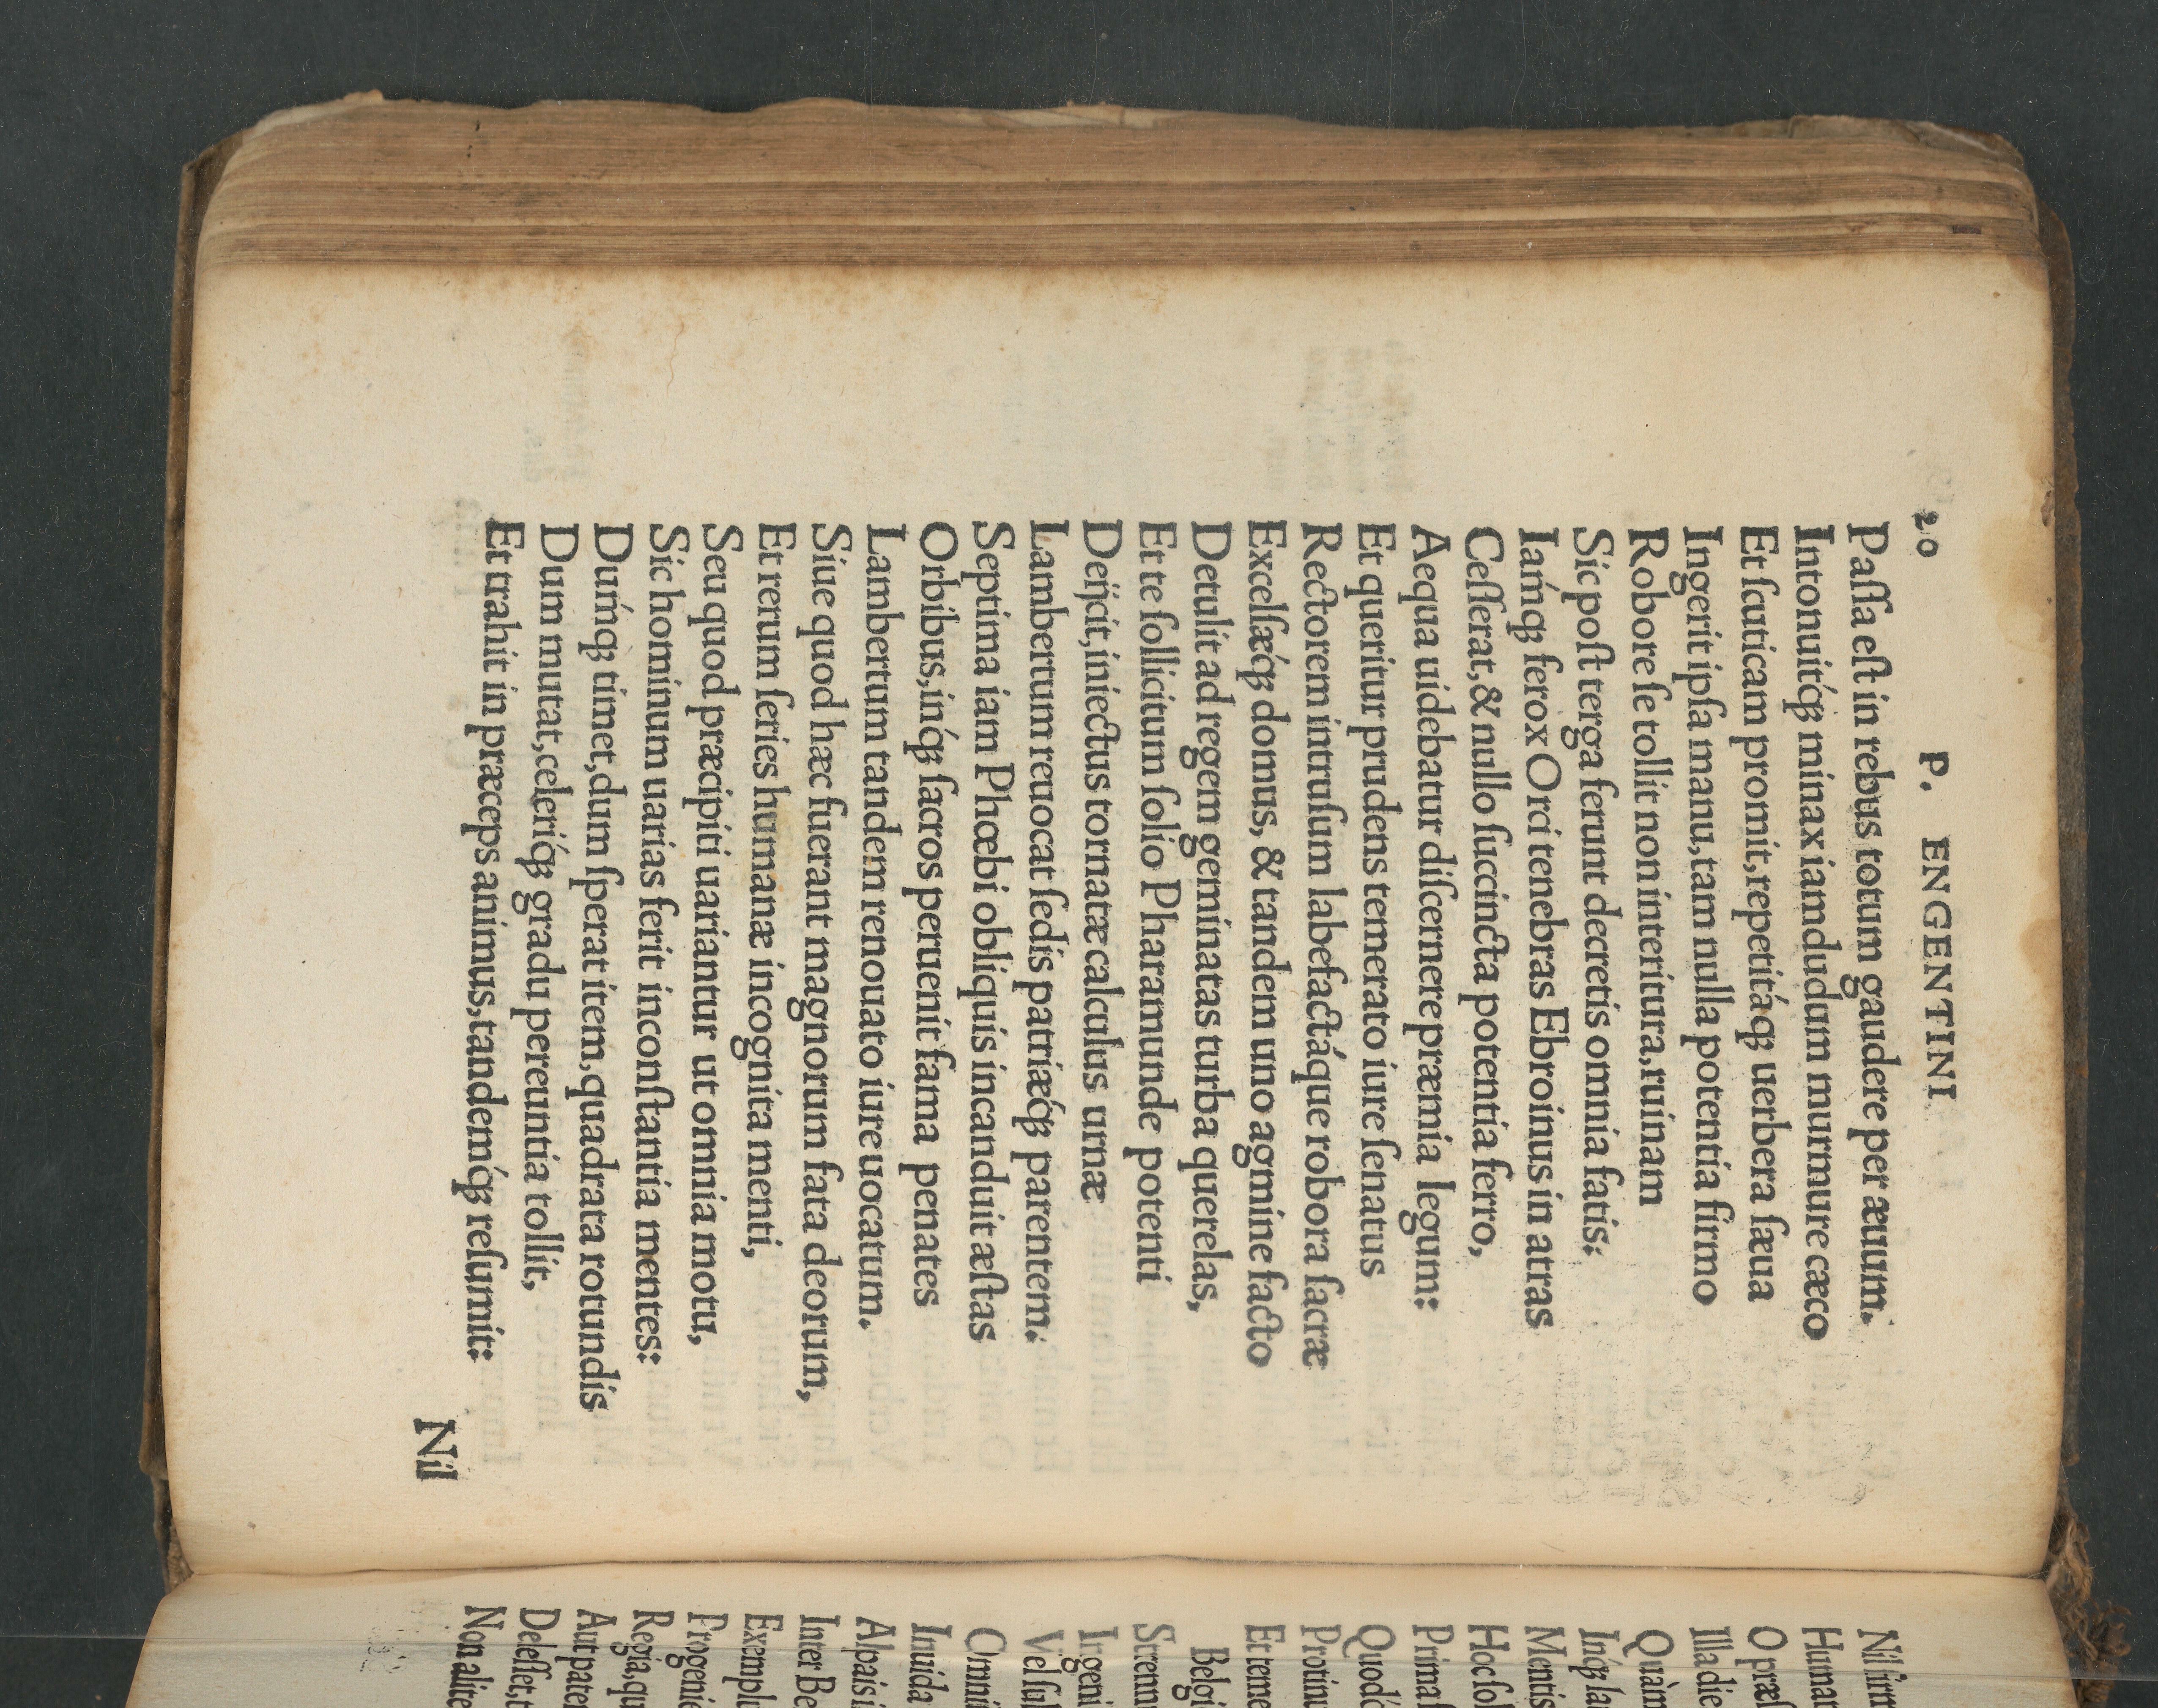 20 P. ENGENTINI
Paſſa eſt in rebus totum gaudere per æuum.
Intonuitq́ꝫ minax iamdudum murmure cæco
Et ſcuticam promit, repetitáqꝫ uerbera ſæua
Ingerit ipſa manu, tam nulla potentia firmo
Robore ſe tollit non interitura, ruinam
Sic poſt terga ferunt decretis omnia fatis:
Iamq́ꝫ ferox Orci tenebras Ebroinus in atras
Ceſſerat, & nullo ſuccincta potentia ferro,
Aequa uidebatur diſcernere præmia legum:
Et queritur prudens temerato iure ſenatus
Rectorem intruſum labefactáque robora ſacræ
Excelſæq́ꝫ domus, & tandem uno agmine facto
Detulit ad regem geminatas turba querelas,
Et te ſollicitum ſolio Pharamunde potenti
Deijcit, iniectus tornatæ calculus urnæ
Lambertum reuocat ſedis patriæq́ꝫ parentem.
Septima iam Phœbi obliquis incanduit æſtas
Orbibus, inq́ꝫ ſacros peruenit fama penates
Lambertum tandem renouato iure uocatum.
Siue quod hæc fuerant magnorum fata deorum,
Et rerum ſeries humanæ incognita menti,
Seu quod præcipiti uariantur ut omnia motu,
Sic hominum uarias ferit inconſtantia mentes:
Dumq́ꝫ timet, dum ſperat item, quadrata rotundis
Dum mutat, celeriq́ꝫ gradu pereuntia tollit,
Et trahit in præceps animus, tandemq́ꝫ reſumit:
Nil
Nil firm
Humar
O præſ
Illa die
Quàm
Inq́ꝫ la
Mentis
Hoc ſol
Prima
Quod
Protinu
Et teme
Belgi
Strenu
Ingeni
Vel ſul
Omni
Inuida
Alpais i
Inter Be
Exemplu
Progenie
Regia, qu
Aut pater
Deleſſet, t
Non alite